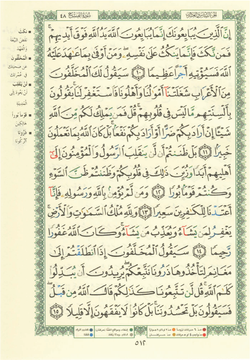 إِنَّ ٱلَّذِينَ يُبَايِعُونَكَ إِنَّمَا يُبَايِعُونَ ٱللَّهَ يَدُ ٱللَّهِ فَوْقَ أَيْدِيهِمْ
فَمَن نَّكَثَ فَإِنَّمَا يَنكُثُ عَلَىٰ نَفْسِهِۦ وَمَنْ أَوْفَىٰ بِمَا عَٰهَدَ عَلَيْهُ
ٱللَّهَ فَسَيُؤْتِيهِ أَجْرًا عَظِيمًا ١٠ سَيَقُولُ لَكَ ٱلْمُخَلَّفُونَ
مِنَ ٱلْأَعْرَابِ شَغَلَتْنَآ أَمْوَٰلُنَا وَأَهْلُونَا فَٱسْتَغْفِرْ لَنَا يَقُولُونَ
بِأَلْسِنَتِهِم مَّا لَيْسَ فِي قُلُوبِهِمْ قُلْ فَمَن يَمْلِكُ لَكُم مِّنَ ٱللَّهِ
شَيْـًٔا إِنْ أَرَادَ بِكُمْ ضَرًّا أَوْ أَرَادَ بِكُمْ نَفْعًۢا بَلْ كَانَ ٱللَّهُ بِمَا تَعْمَلُونَ
خَبِيرًۢا ١١ بَلْ ظَنَنتُمْ أَن لَّن يَنقَلِبَ ٱلرَّسُولُ وَٱلْمُؤْمِنُونَ إِلَىٰٓ
أَهْلِيهِمْ أَبَدًا وَزُيِّنَ ذَٰلِكَ فِي قُلُوبِكُمْ وَظَنَنتُمْ ظَنَّ ٱلسَّوْءِ
وَكُنتُمْ قَوْمًۢا بُورًا ١٢ وَمَن لَّمْ يُؤْمِنۢ بِٱللَّهِ وَرَسُولِهِۦ فَإِنَّآ
أَعْتَدْنَا لِلْكَٰفِرِينَ سَعِيرًا ١٣ وَلِلَّهِ مُلْكُ ٱلسَّمَٰوَٰتِ وَٱلْأَرْضِ
يَغْفِرُ لِمَن يَشَآءُ وَيُعَذِّبُ مَن يَشَآءُ وَكَانَ ٱللَّهُ غَفُورًا
رَّحِيمًا ١٤ سَيَقُولُ ٱلْمُخَلَّفُونَ إِذَا ٱنطَلَقْتُمْ إِلَىٰ
مَغَانِمَ لِتَأْخُذُوهَا ذَرُونَا نَتَّبِعْكُمْ يُرِيدُونَ أَن يُبَدِّلُوا۟
كَلَٰمَ ٱللَّهِ قُل لَّن تَتَّبِعُونَا كَذَٰلِكُمْ قَالَ ٱللَّهُ مِن قَبْلُ
فَسَيَقُولُونَ بَلْ تَحْسُدُونَنَا بَلْ كَانُوا۟ لَا يَفْقَهُونَ إِلَّا قَلِيلًا ١٥
٥١٢